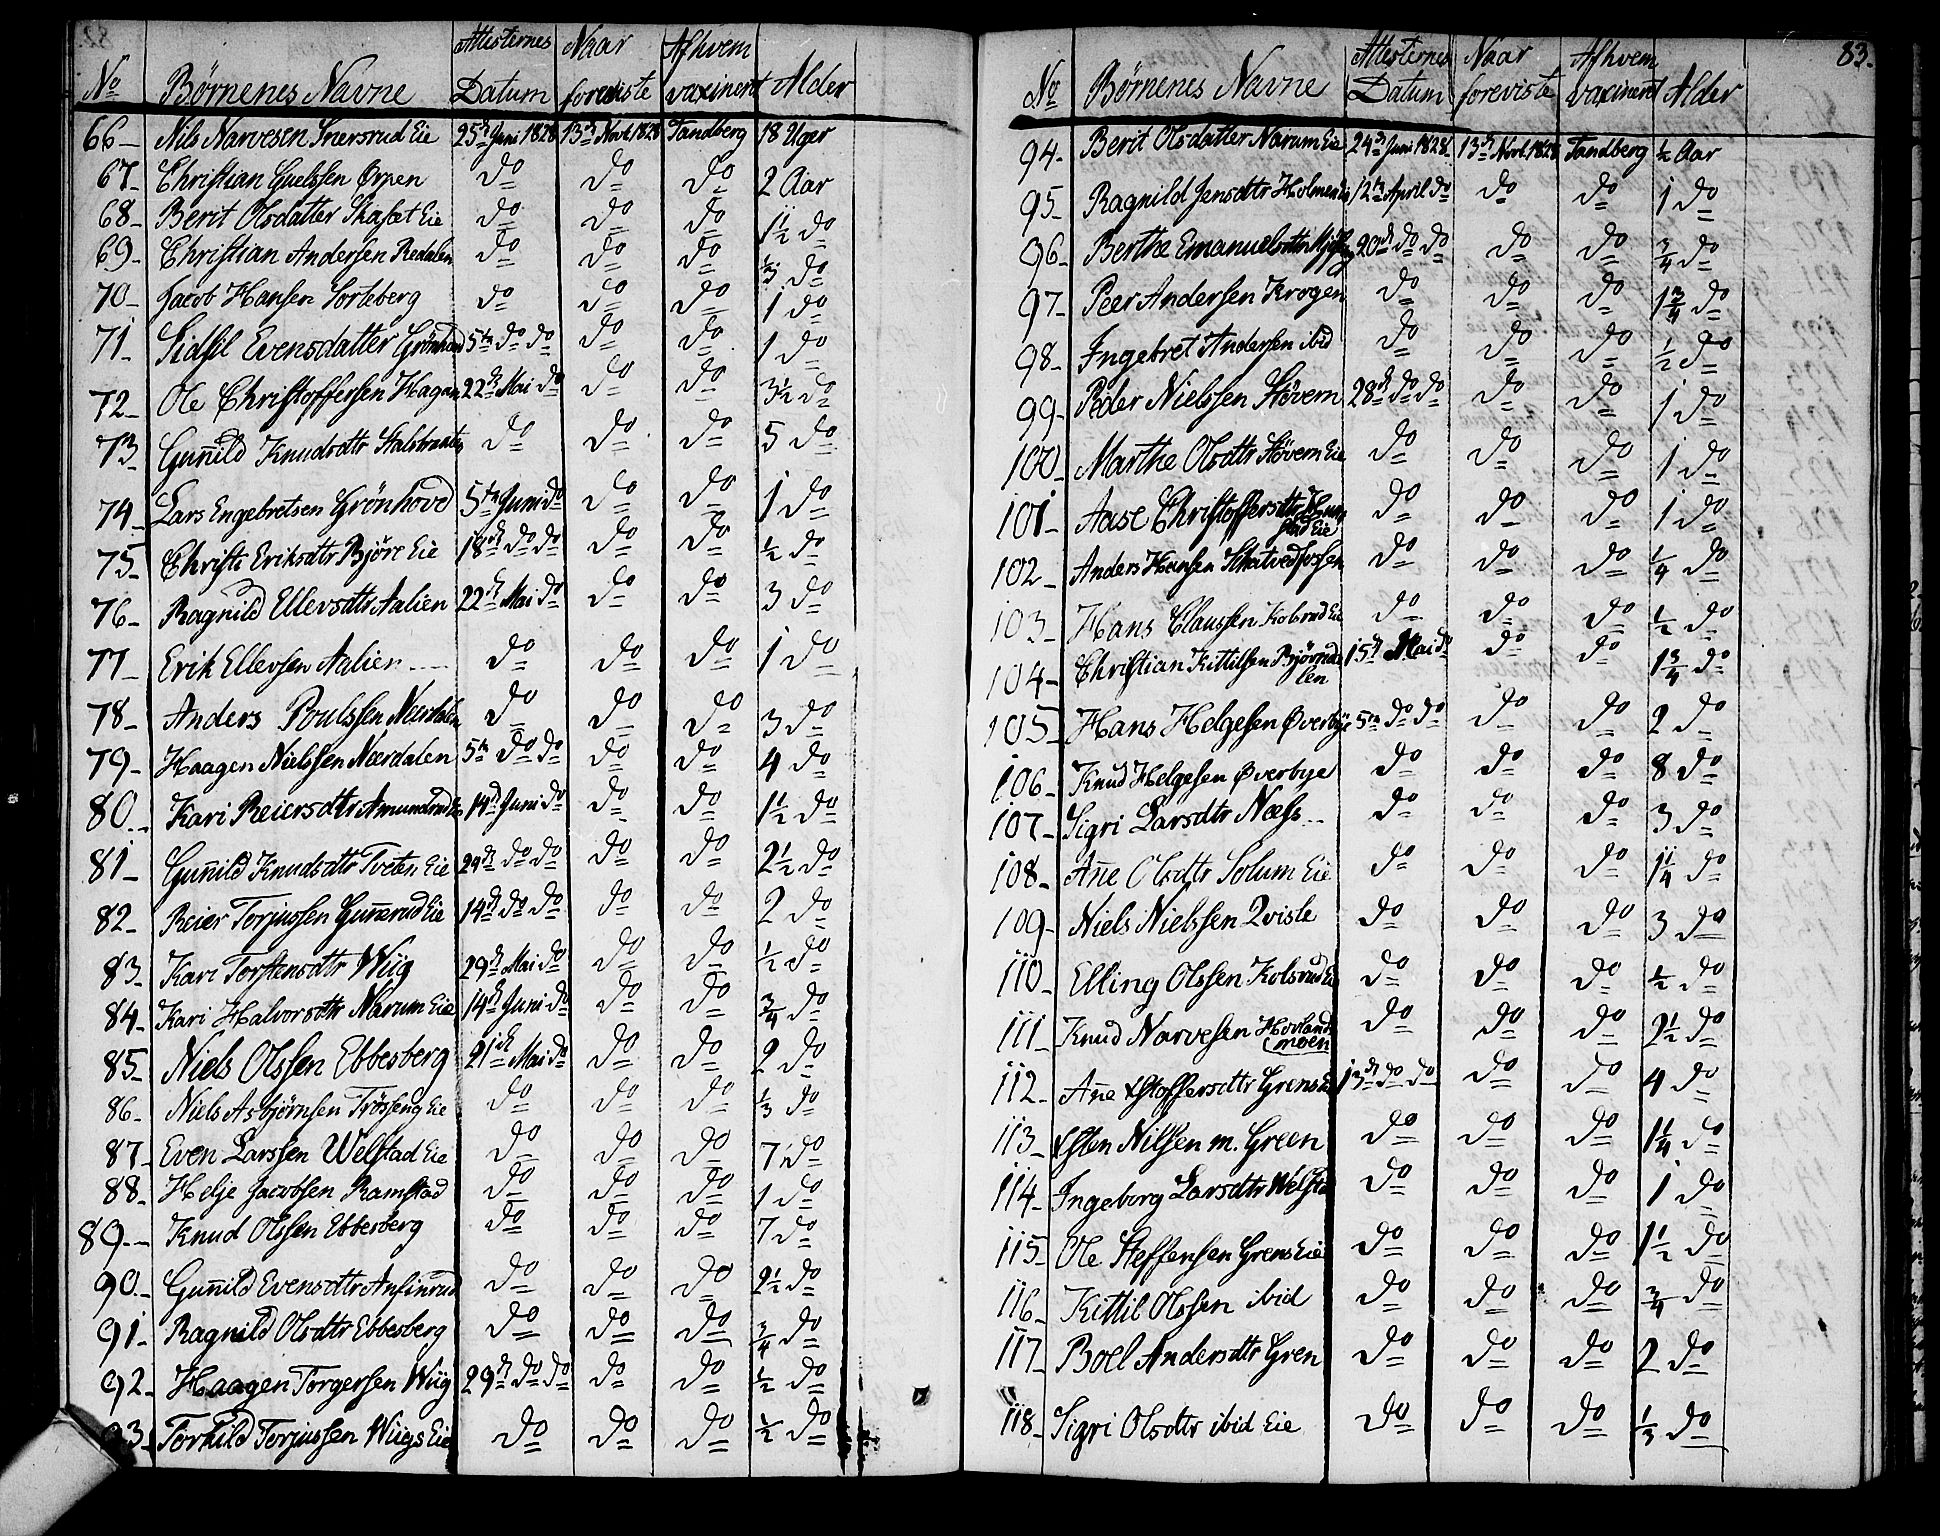 Nº Børnenes Navne Attesternes Datum Naar foreviste Afhvem vaxineret Alder
66 Nils Narvesen Snersrud Eie 25de Juni 1828 13de Novb 1828 Tandberg 18 Uger
67 Christian Guelssen Ørpen do do do 2 Aar
68 Berit Olsdatter Skaset Eie do do do 1½ do
69 Christian Andersen Redalen do do do ½ do
70 Jacob Hansen Sorteberg do do do 1 do
71 Sidsil Evensdatter Grønhovd 5te do do do do 1 do
72 Ole Christoffersen Hagan 22de Mai do do do 3½ do
73 Guñild Knudsdtr Stalsbraaten do do do 5 do
74 Lars Engebretsen Grønhovd 5te Juni do do do 1 do
75 Christi Eriksdtr Bjøre Eie 18de do do do do ½ do
76 Ragnild Ellevsdtr Aalien 22de Mai do do do 3 do
77 Erik Ellevsen Aalien do do do 1 do
78 Anders Poulssen Neerdalen do do do 3 do
79 Haagen Nielssen Nærdalen 5te do do do do 4 do
80 Kari Reiersdtr Amundrud Eie 14de Juni do do do 1½ do
81 Guñild Knudsdtr Tveten Eie 24de do do do do 2½ do
82 Reier Torjussen Guñerud Eie 14de do do do do 2 do
83 Kari Torstensdtr Wiig 29de Mai do do do ½ do
84 Kari Halvorsdtr Narum Eie 14de Juni do do do ¾ do
85 Niels Olssen Ebbesberg 21de Mai do do do 2 do
86 Niels Asbjørnsen Trøsseng Eie do do do ⅓ do
87 Even Larssen Welstad Eie do do do 7 do
88 Helje Jacobsen Ramstad do do do 1 do
89 Knud Olssen Ebbesberg do do do 7 do
90 Guñild Evensdtr Anfinrud do do do 2½ do
91 Ragnild Olsdtr Ebbesberg do do do ¾ do
92 Haagen Torgersen Wiig 29de do do do do ½ do
93 Torkild Torjussen Wiigs Eie do do do ½ do
83.
No Børnenes Navne Attesternes Datum Naar foreviste Afhvem vaxineret Alder
94 Berit Olsdatter Narum Eie 24de Juni 1828 13de Novb 1828 Tandberg ½ Aar
95 Ragnild Jensdtr Holmen Eie 12te April do do do 1 do
96 Berthe Emanuelsdtr 20de do do do do ¾ do
97 Peer Andersen Krogen do do do 1¾ do
98 Ingebret Andersen ibid do do do ½ do
99 Peder Nielssen Støvern 28de do do do do 1 do
100 Marthe Olsdtr Støvern Eie do do do 1 do
101 Aase Christoffersdtr
Eie do do do 1 do
102 Anders Hansen Skatvedfossen do do do ¼ do
103 Hans Claussen Kolsrud Eie do do do ½ do
104 Christian Kittilsen Bjørnda
len 15de Mai do do do 1¾ do
105 Hans Helgesen Øverbye 5te do do do do 2 do
106 Knud Helgesen Øverbye do do do 8 do
107 Sigri Larsdtr Næss do do do 3 do
108 Añe Olsdtr Solum Eie do do do 1¼ do
109 Niels Nielssen Qvisle do do do 3 do
110 Elling Olssen Kolsrud Eie do do do ½ do
111 Knud Narvesen Hovlands
moen do do do 2½ do
112 Añe Xstoffersdtr Grens Eie 13de do do do do 4 do
113 Xsten Nilsen m. Green do do do 1¼ do
114 Ingeborg Larsdtr Welstad do do do 1 do
115 Ole Steffensen Grens Eie do do do 1½ do
116 Kittil Olssen ibid do do do ¾ do
117 Boel Andersdtr Gren do do do 2 do
118 Sigri Olsdtr ibid Eie do do do ⅓ do